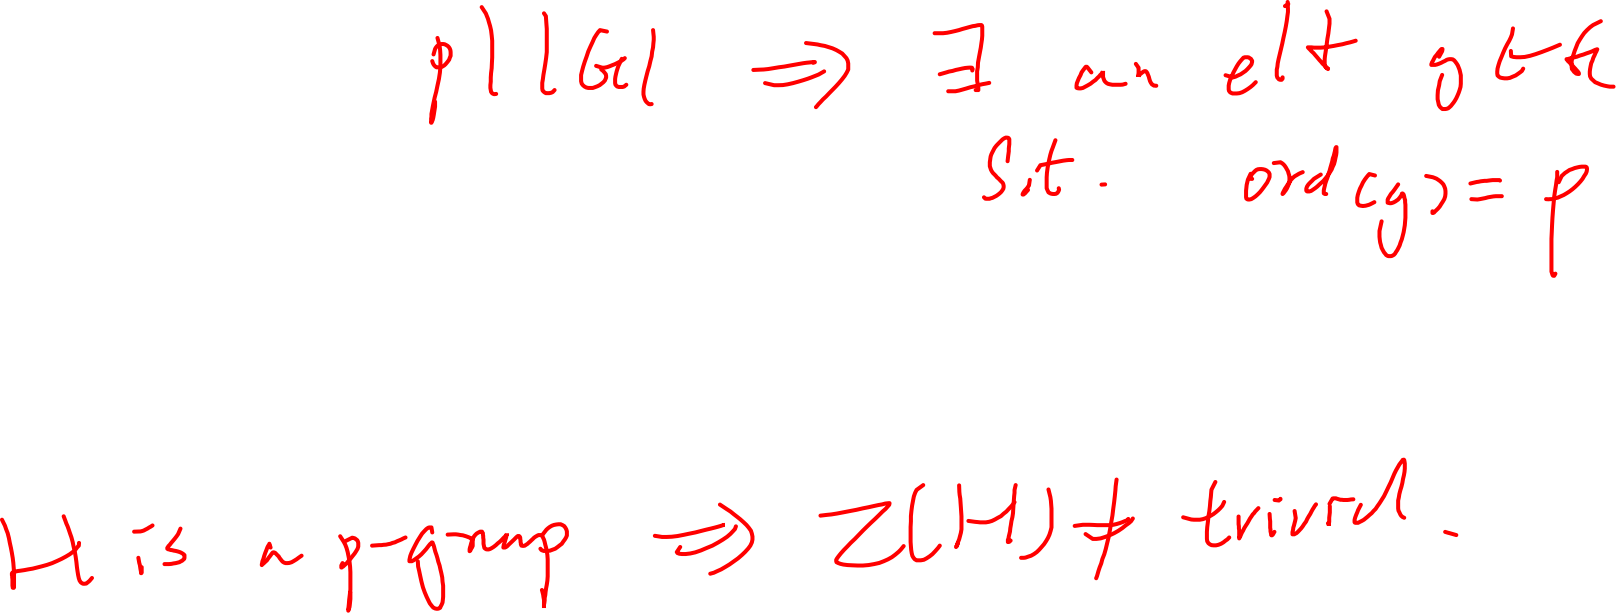 p | |G| ⇒ ∃ an elt g ∈ G
s.t. ord(g) = p
H is a p-group ⇒ Z(H) ≠ trivial.